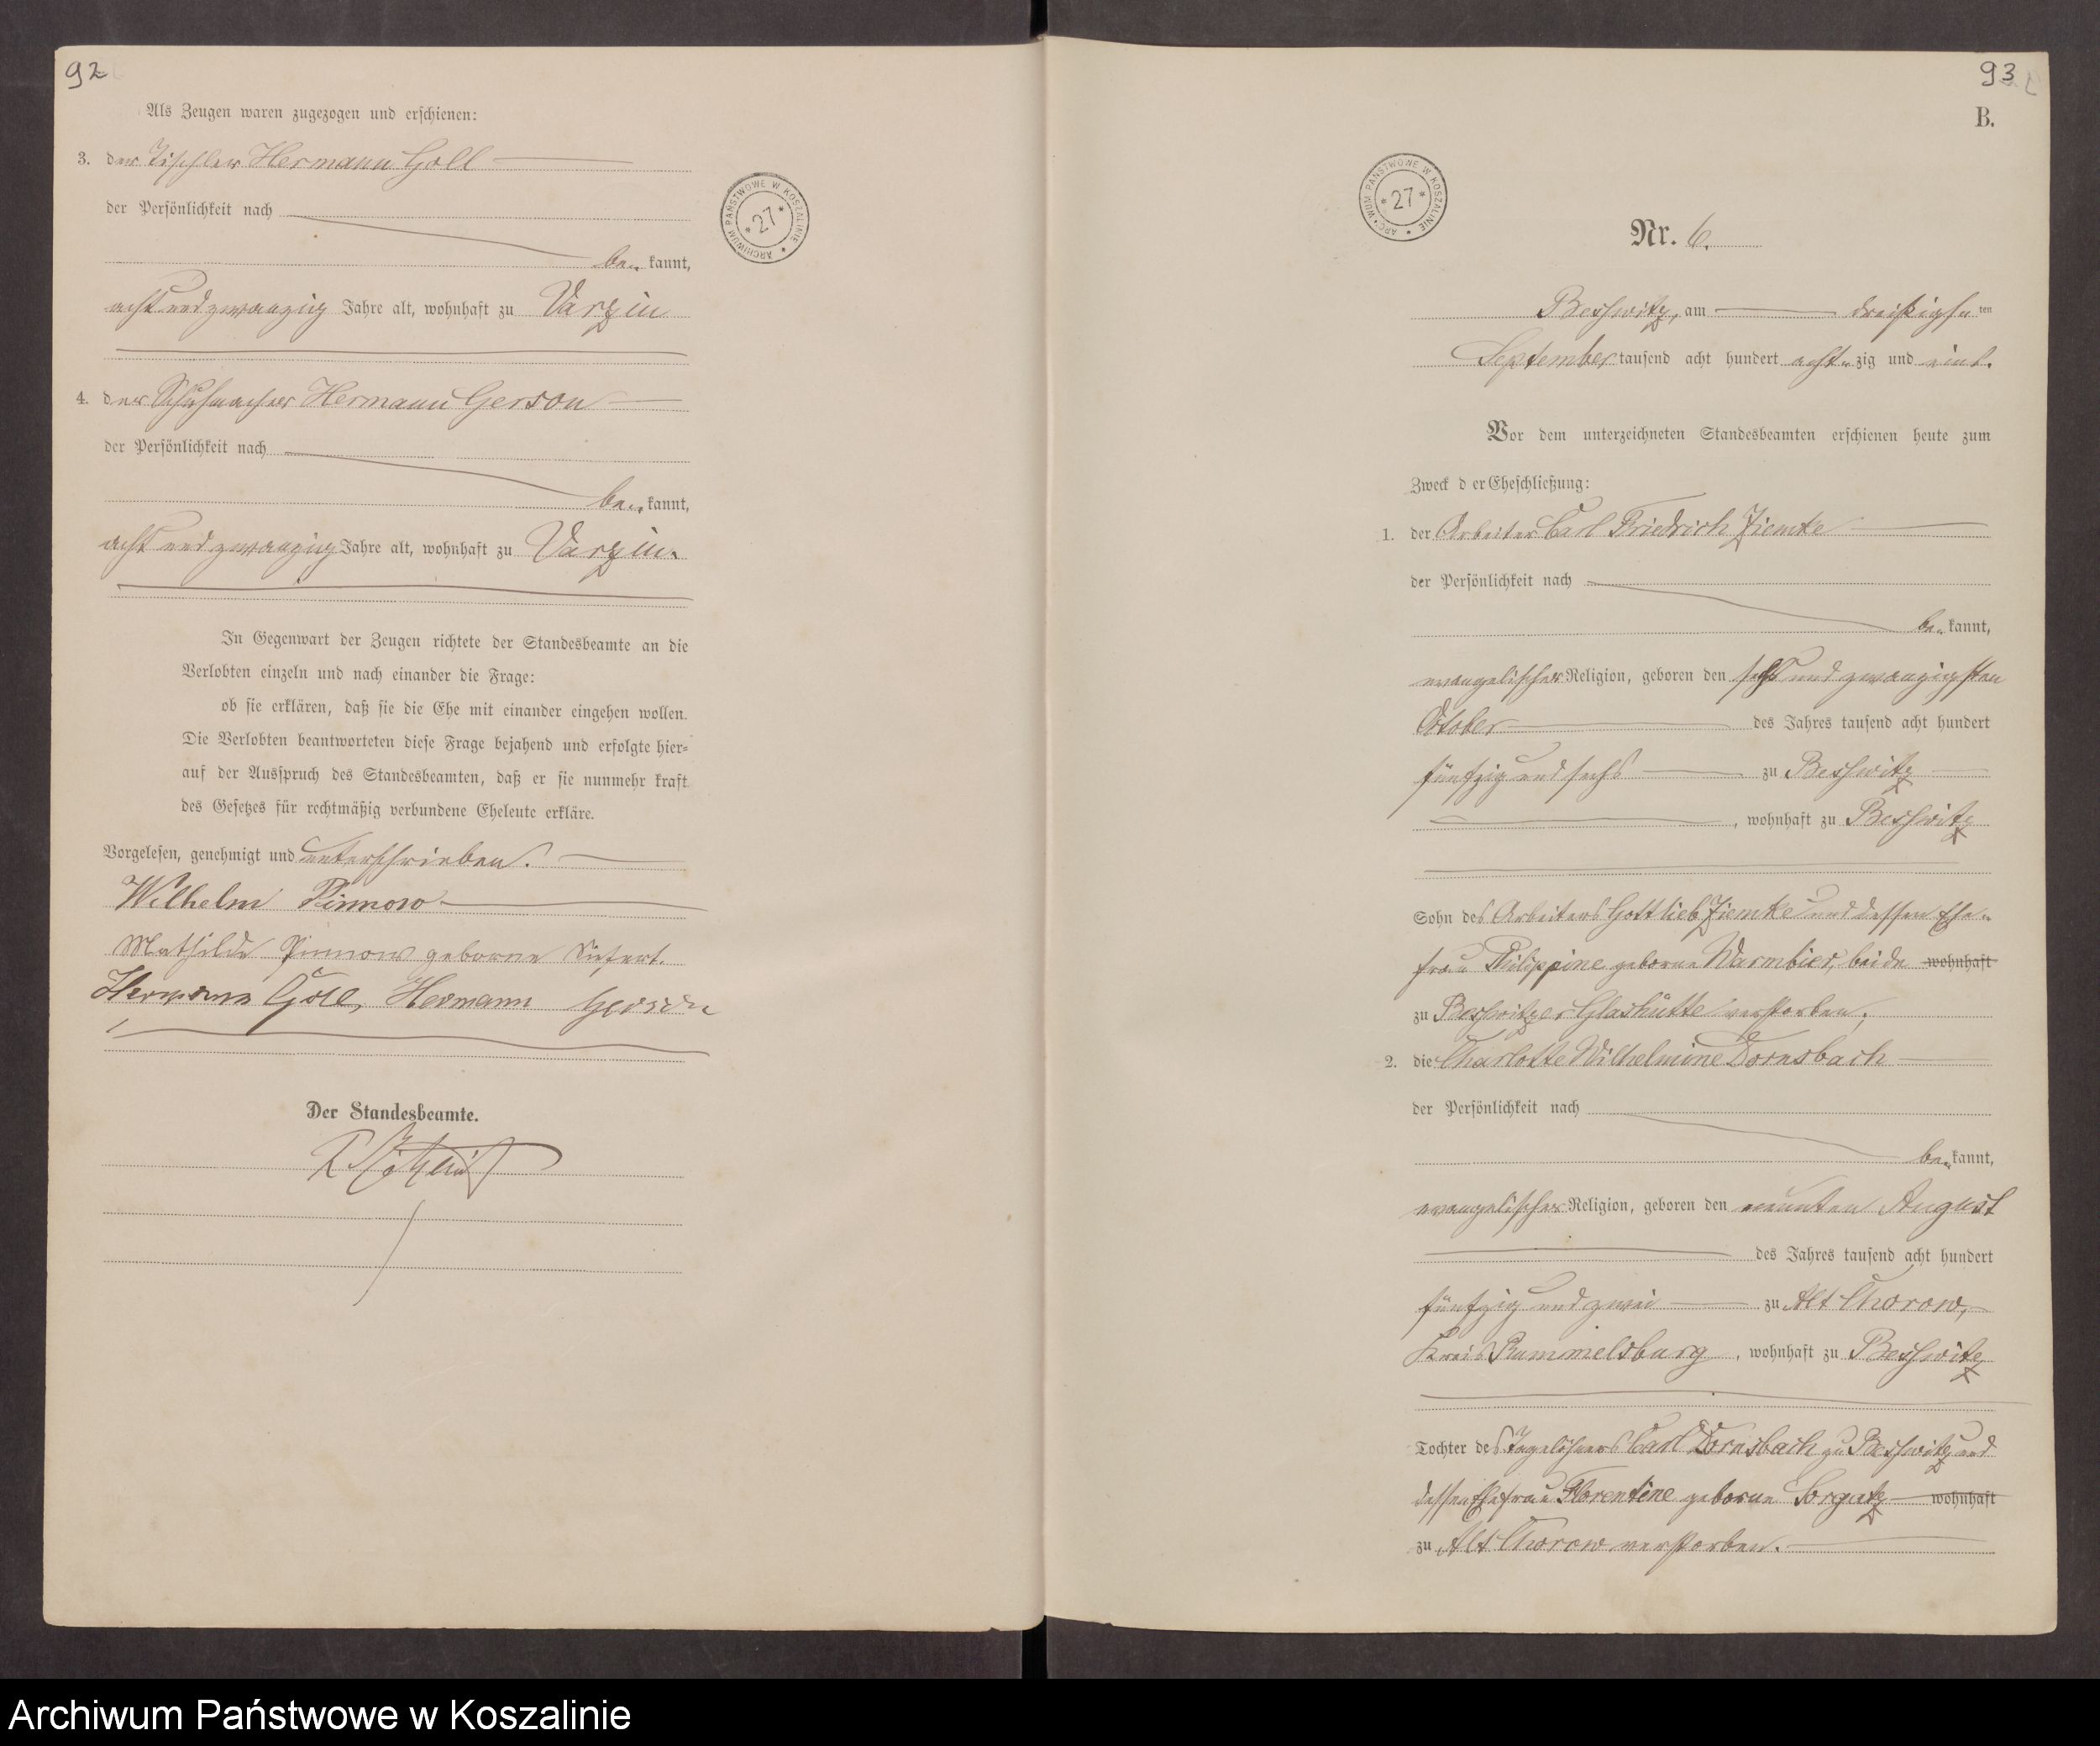 92
Als Zeugen waren zugezogen und erschienen:
3. der Tischler Hermann Goll
der Persönlichkeit nach
be- kannt,
acht und zwanzig Jahre alt, wohnhaft zu Varzin
4. der Schuhmacher Hermann Gerson
der Persönlichkeit nach
be- kannt,
acht und zwanzig Jahre alt, wohnhaft zu Varzin.
In Gegenwart der Zeugen richtete der Standesbeamte an die
Verlobten einzeln und nach einander die Frage:
ob sie erklären, daß sie die Ehe mit einander eingehen wollen.
Die Verlobten beantworteten diese Frage bejahend und erfolgte hier-
auf der Ausspruch des Standesbeamten, daß er sie nunmehr kraft
des Gesetzes für rechtmäßig verbundene Eheleute erkläre.
Vorgelesen, genehmigt und unterschrieben.
Wilhelm Pinnow
Mathilde Pinnow geborne
Hermann Goll, Hermann Gerson
Der Standesbeamte.
ARCHIWUM PAŃSTWOWE W KOSZALINIE
* 27 *
93
B.
ARCHIWUM PAŃSTWOWE W KOSZALINIE
* 27 *
Nr. 6.
Beßwitz, am dreißigsten
September tausend acht hundert achtzig und eins.
Vor dem unterzeichneten Standesbeamten erschienen heute zum
Zweck der Eheschließung:
1. der Arbeiter Carl Friedrich Ziemke
der Persönlichkeit nach
be- kannt,
evangelischer Religion, geboren den sechs und zwanzigsten
October des Jahres tausend acht hundert
fünfzig und sechs zu Beßwitz
, wohnhaft zu Beßwitz
Sohn des Arbeiters Gottlieb Ziemke und dessen Ehe-
frau Philippine geborne Warmbier, beide wohnhaft
zu Beßwitzer Glashütte verstorben;
2. die Charlotte Wilhelmine Dornsbach
der Persönlichkeit nach
be- kannt,
evangelischer Religion, geboren den neunten August
des Jahres tausend acht hundert
fünfzig und zwei zu Alt Chorow,
Kreis Rummelsburg, wohnhaft zu Beßwitz
Tochter des Tagelöhners Carl Dornsbach zu Beßwitz und
dessen Ehefrau Florentine geborne Sorgatz wohnhaft
zu Alt Chorow verstorben.
Archiwum Państwowe w Koszalinie